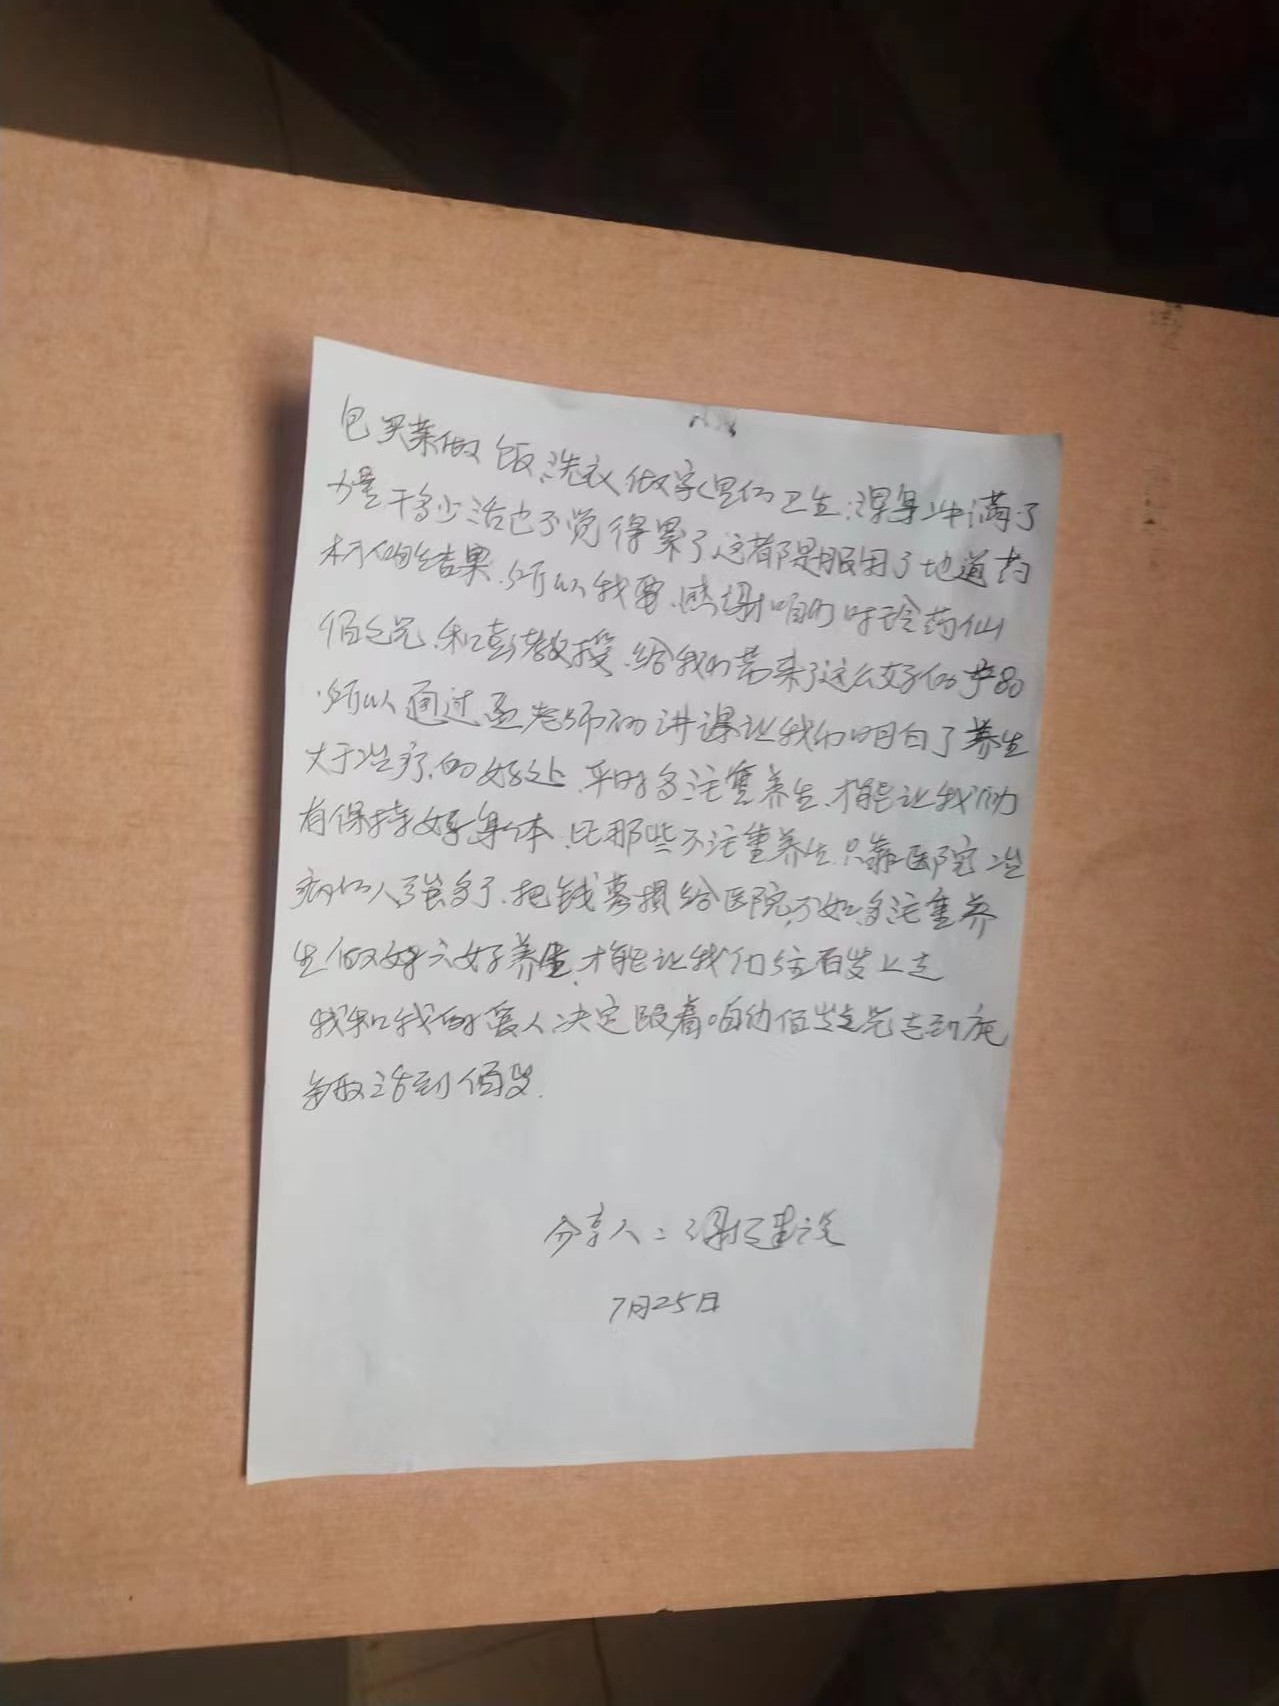 包买菜做饭洗衣做家里的卫生,浑身冲满了
力量干多少活也不觉得累了这都是服用了地道药
材的结果.所以我要.感谢咱们时珍药仙
佰之元.和彭教授.给我们带来了这么好的产品
所以通过孟老师的讲课让我们明白了养生
大于治疗.的好处.平时多注重养生.才能让我们
有保持好身体.比那些不注重养生.只靠医院治
病的人强多了.把钱募捐给医院,不如多注重养
生做好六好养生.才能让我们往百岁上走
我和我的爱人.决定跟着咱们佰岁之元走到底
争取活到佰岁.
分享人:谢建
7月25日